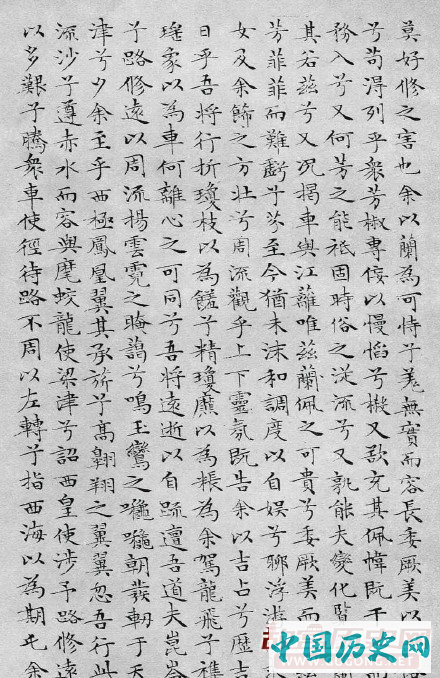 莫好修之害也余以蘭為可恃兮羌無實而容長委厥美以
兮苟得列乎衆芳椒專佞以慢慆兮樧又欲充其佩幃既干
務入兮又何芳之能祗固時俗之從流兮又孰能夫變化覽
其若茲兮又況揭車與江蘺唯茲蘭佩之可貴兮委厥美而
芳菲菲而難虧兮芬至今猶未沬和調度以自娛兮聊浮游
女及余飾之方壯兮周流觀乎上下靈氛既告余以吉占兮歷吉
日乎吾將行折瓊枝以為饈兮精瓊爢以為粻為余駕龍飛兮襍
瑤象以為車何離心之可同兮吾將遠逝以自疏邅吾道夫崑崙
兮路修遠以周流揚雲霓之晻藹兮鳴玉鸞之噰噰朝發軔于天
津兮夕余至乎西極鳳凰翼其承旂兮高翱翔之翼翼忽吾行此
流沙兮遵赤水而容與麾蛟龍使梁津兮詔西皇使涉予路修遠
以多艱兮騰衆車使徑待路不周以左轉兮指西海以為期屯余
中国历史网